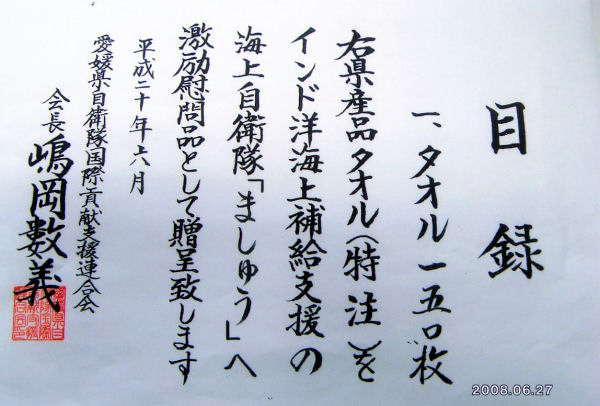 目録
一、タオル一五〇枚
右県産品タオル(特注)を
インド洋海上補給支援の
海上自衛隊「ましゅう」へ
激励慰問品として贈呈致します
平成二十年六月
愛媛県自衛隊国際貢献支援連合会
会長 嶋岡數義
2008.06.27